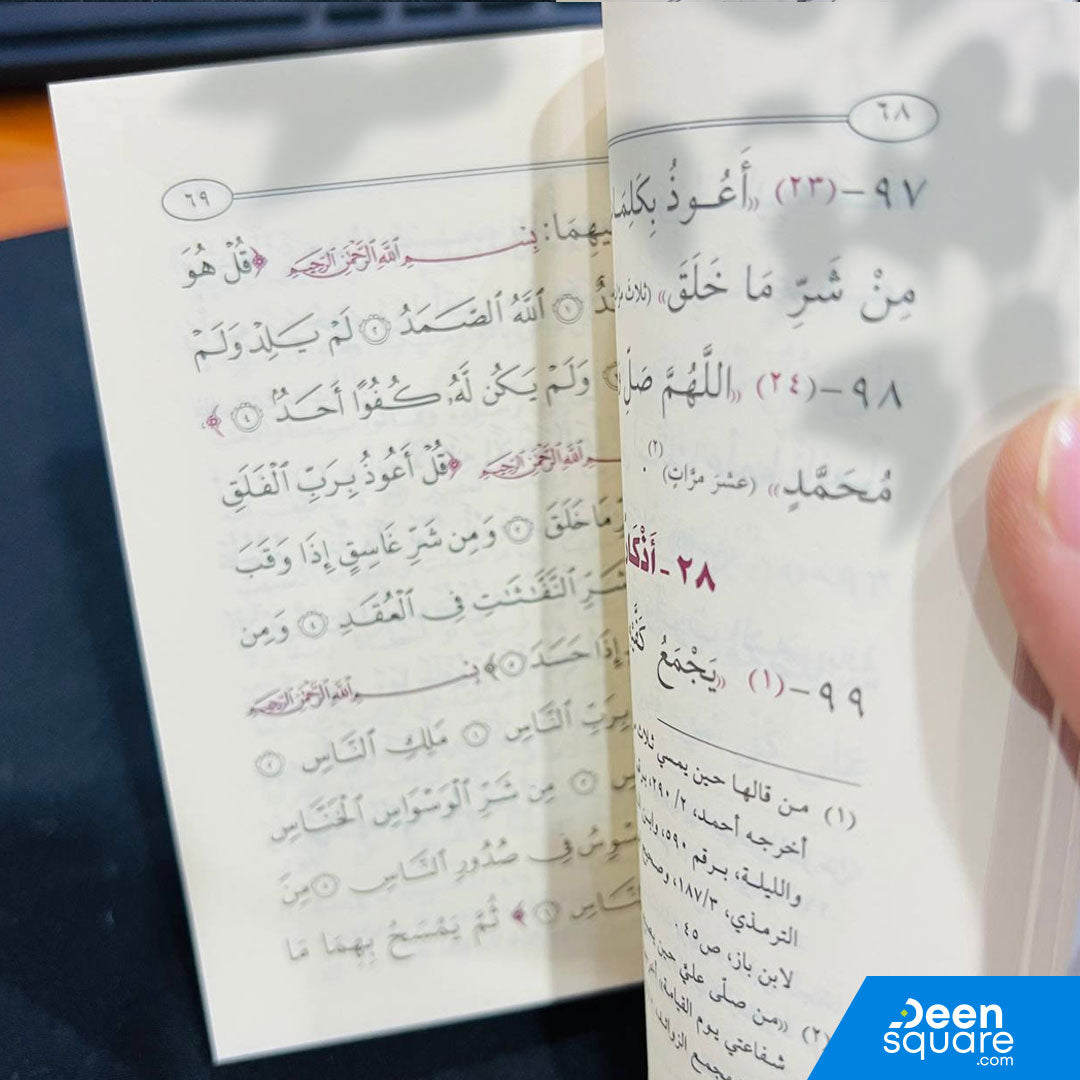 ٦٨
٩٧-(٢٣) «أَعُوذُ بِكَلِمَا
مِنْ شَرِّ مَا خَلَقَ» (ثلاث
٩٨-(٢٤) «اللَّهُمَّ صَلِّ
مُحَمَّدٍ» (عشرَ مرَّاتٍ) (٢) .
٢٨- أَذْكَارُ
٩٩-(١) «يَجْمَعُ
(١) من قالها حين يمسي ثلاث
أخرجه أحمد، ٢/ ٢٩٠، برقم
والليلة، برقم ٥٩٠، وابن
الترمذي، ٣/ ١٨٧، وصحيح
لابن باز، ص٤٥ .
(٢) «من صلّى عليَّ حين
شفاعتي يوم القيامة» أخرجه
مجمع الزوائد
٦٩
يهِمَا: بِسْمِ اللَّهِ الرَّحْمَٰنِ الرَّحِيمِ ﴿قُلْ هُوَ
١ ٱللَّهُ ٱلصَّمَدُ ٢ لَمْ يَلِدْ وَلَمْ
وَلَمْ يَكُن لَّهُۥ كُفُوًا أَحَدٌۢ ٤﴾،
ـمِ اللَّهِ الرَّحْمَٰنِ الرَّحِيمِ ﴿قُلْ أَعُوذُ بِرَبِّ ٱلْفَلَقِ
مَا خَلَقَ ٢ وَمِن شَرِّ غَاسِقٍ إِذَا وَقَبَ
شَرِّ ٱلنَّفَّٰثَٰتِ فِى ٱلْعُقَدِ ٤ وَمِن
إِذَا حَسَدَ ٥﴾ بِسْمِ اللَّهِ الرَّحْمَٰنِ الرَّحِيمِ
بِرَبِّ ٱلنَّاسِ ١ مَلِكِ ٱلنَّاسِ ٢
٣ مِن شَرِّ ٱلْوَسْوَاسِ ٱلْخَنَّاسِ
سْوِسُ فِى صُدُورِ ٱلنَّاسِ ٥ مِنَ
ٱلنَّاسِ ٦﴾ ثُمَّ يَمْسَحُ بِهِمَا مَا
Deen
square
.com